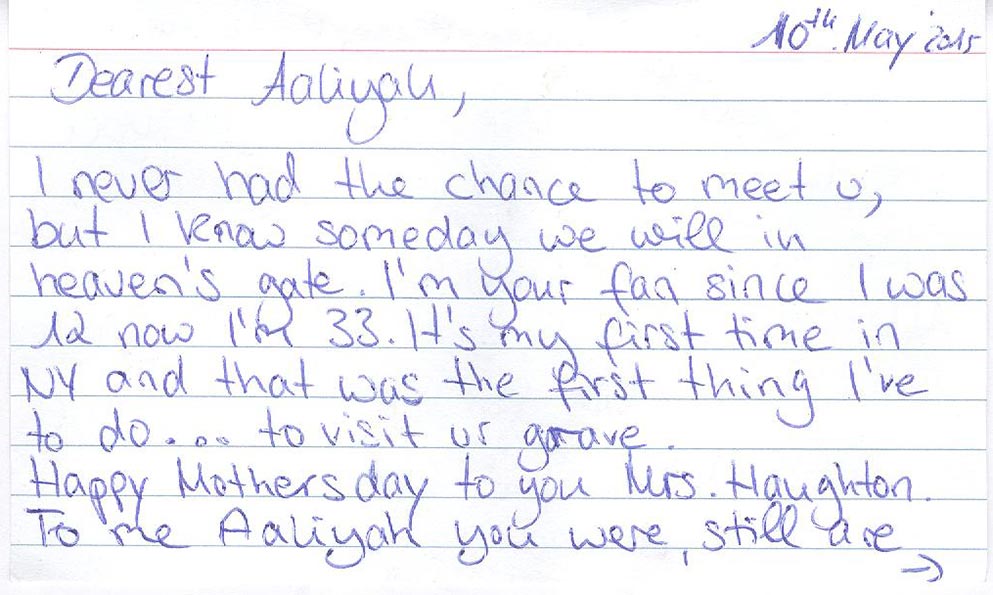 10th May 2015
Dearest Aaliyah,
I never had the chance to meet u,
but I know someday we will in
heaven's gate. I'm your fan since I was
12 now I'm 33. It's my first time in
NY and that was the first thing I've
to do.... to visit ur grave.
Happy Mothersday to you Mrs. Haughton.
To me Aaliyah you were, still are
→